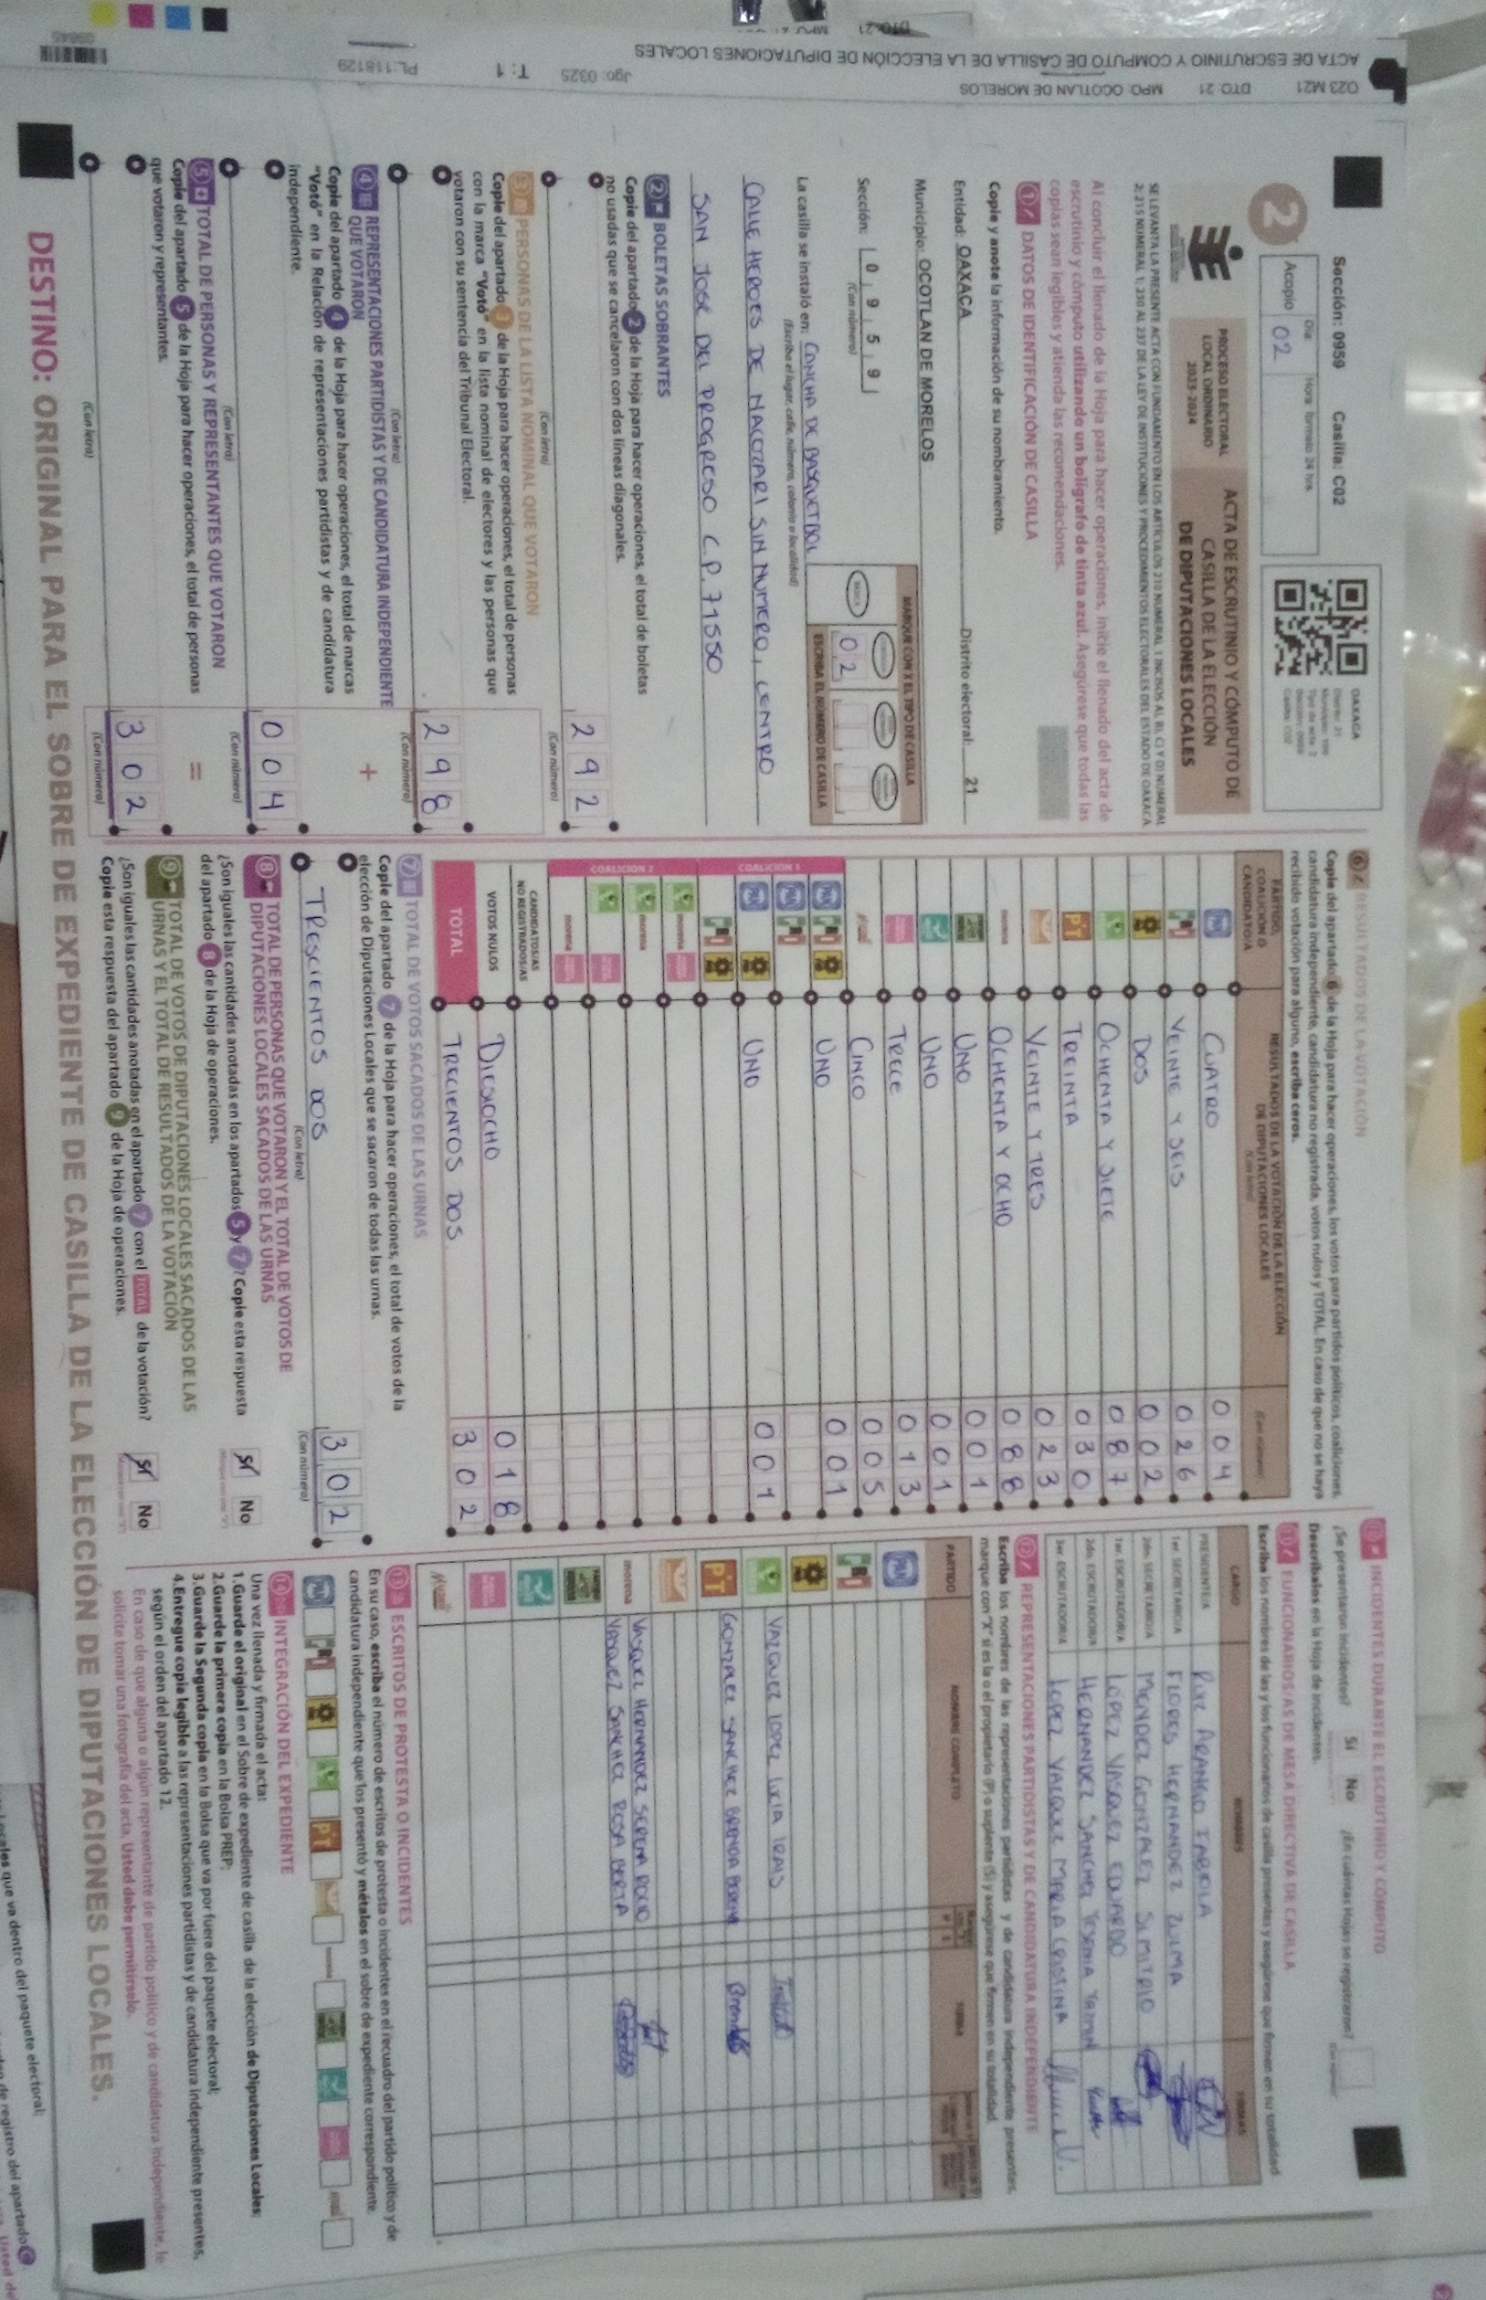 O23 M21 DTO: 21 MPO: OCOTLAN DE MORELOS Jgo: 0325 T: 1 PL:118129
ACTA DE ESCRUTINIO Y CÓMPUTO DE CASILLA DE LA ELECCIÓN DE DIPUTACIONES LOCALES
Sección: 0959 Casilla: C02
2
Día Hora formato 24 hrs
Acopio 02
OAXACA
PROCESO ELECTORAL
LOCAL ORDINARIO
2023-2024
ACTA DE ESCRUTINIO Y CÓMPUTO DE
CASILLA DE LA ELECCIÓN
DE DIPUTACIONES LOCALES
Al concluir el llenado de la Hoja para hacer operaciones, inicie el llenado del acta de
escrutinio y cómputo utilizando un bolígrafo de tinta azul. Asegúrese que todas las
copias sean legibles y atienda las recomendaciones.
1 DATOS DE IDENTIFICACIÓN DE CASILLA
Copie y anote la información de su nombramiento.
Entidad: OAXACA Distrito electoral: 21
Municipio: OCOTLAN DE MORELOS
MARQUE CON X EL TIPO DE CASILLA
Sección: 0 9 5 9
(Con número)
0 2
ESCRIBA EL NÚMERO DE CASILLA
La casilla se instaló en: CANCHA DE BASQUETBOL
(Escriba el lugar, calle, número, colonia o localidad)
CALLE HEROES DE NACOZARI SIN NUMERO, CENTRO
SAN JOSE DEL PROGRESO C.P. 71550
2 BOLETAS SOBRANTES
Copie del apartado 2 de la Hoja para hacer operaciones, el total de boletas
no usadas que se cancelaron con dos líneas diagonales.
292
(Con letra) (Con número)
3 PERSONAS DE LA LISTA NOMINAL QUE VOTARON
Copie del apartado 3 de la Hoja para hacer operaciones, el total de personas
con la marca "Votó" en la lista nominal de electores y las personas que
votaron con su sentencia del Tribunal Electoral.
298
(Con letra) (Con número)
4 REPRESENTACIONES PARTIDISTAS Y DE CANDIDATURA INDEPENDIENTE
QUE VOTARON
+
Copie del apartado 4 de la Hoja para hacer operaciones, el total de marcas
"Votó" en la Relación de representaciones partidistas y de candidatura
independiente.
004
(Con letra) (Con número)
5 TOTAL DE PERSONAS Y REPRESENTANTES QUE VOTARON
=
Copie del apartado 5 de la Hoja para hacer operaciones, el total de personas
que votaron y representantes.
302
(Con letra) (Con número)
6 RESULTADOS DE LA VOTACIÓN
Copie del apartado 6 de la Hoja para hacer operaciones, los votos para partidos políticos, coaliciones,
candidatura independiente, candidatura no registrada, votos nulos y TOTAL. En caso de que no se haya
recibido votación para alguno, escriba ceros.
PARTIDO,
COALICIÓN O
CANDIDATO/A
RESULTADOS DE LA VOTACIÓN DE LA ELECCIÓN
DE DIPUTACIONES LOCALES
PAN CUATRO 004
PRI VEINTE Y SEIS 026
DOS 002
OCHENTA Y SIETE 087
PT TREINTA 030
VEINTE Y TRES 023
morena OCHENTA Y OCHO 088
UNO 001
UNO 001
TRECE 013
CINCO 005
COALICIÓN 1
UNO 001
UNO 001
COALICIÓN 2
CANDIDATOS/AS
NO REGISTRADOS/AS
VOTOS NULOS DIESIOCHO 018
TOTAL TRECIENTOS DOS 302
7 TOTAL DE VOTOS SACADOS DE LAS URNAS
Copie del apartado 7 de la Hoja para hacer operaciones, el total de votos de la
elección de Diputaciones Locales que se sacaron de todas las urnas.
TRESCIENTOS DOS 302
(Con letra) (Con número)
8 TOTAL DE PERSONAS QUE VOTARON Y EL TOTAL DE VOTOS DE
DIPUTACIONES LOCALES SACADOS DE LAS URNAS
¿Son iguales las cantidades anotadas en los apartados 5 y 7? Copie esta respuesta
del apartado 8 de la Hoja de operaciones.
Sí No
9 TOTAL DE VOTOS DE DIPUTACIONES LOCALES SACADOS DE LAS
URNAS Y EL TOTAL DE RESULTADOS DE LA VOTACIÓN
¿Son iguales las cantidades anotadas en el apartado 7 con el TOTAL de la votación?
Copie esta respuesta del apartado 9 de la Hoja de operaciones.
Sí No
INCIDENTES DURANTE EL ESCRUTINIO Y CÓMPUTO
¿Se presentaron incidentes? Sí No ¿En cuántas Hojas se registraron?
Descríbalos en la Hoja de incidentes.
FUNCIONARIOS/AS DE MESA DIRECTIVA DE CASILLA
Escriba los nombres de las y los funcionarios de casilla presentes y asegúrese que firmen en su totalidad
CARGO NOMBRES FIRMAS
PRESIDENTE/A RUIZ ARANGO FABIOLA
1er. SECRETARIO/A FLORES HERNANDEZ ZULMA
2do. SECRETARIO/A MENDEZ GONZALEZ SIMITRIO
1er. ESCRUTADOR/A LOPEZ VASQUEZ EDUARDO
2do. ESCRUTADOR/A HERNANDEZ SANCHEZ YESENIA
3er. ESCRUTADOR/A LOPEZ VASQUEZ MARIA CRISTINA
REPRESENTACIONES PARTIDISTAS Y DE CANDIDATURA INDEPENDIENTE
Escriba los nombres de las representaciones partidistas y de candidatura independiente presentes,
marque con "X" si es la o el propietario (P) o suplente (S) y asegúrese que firmen en su totalidad.
PARTIDO NOMBRE COMPLETO FIRMA
PAN
PRI
VAZQUEZ LOPEZ LUCIA IRAIS
PT GONZALEZ SANCHEZ BRENDA
morena VASQUEZ HERNANDEZ SERENA ROCIO
VASQUEZ SANCHEZ ROSA BERTA
ESCRITOS DE PROTESTA O INCIDENTES
En su caso, escriba el número de escritos de protesta o incidentes en el recuadro del partido político y de
candidatura independiente que los presentó y métalos en el sobre de expediente correspondiente.
INTEGRACIÓN DEL EXPEDIENTE
Una vez llenada y firmada el acta:
1.Guarde el original en el Sobre de expediente de casilla de la elección de Diputaciones Locales;
2.Guarde la primera copia en la Bolsa PREP;
3.Guarde la Segunda copia en la Bolsa que va por fuera del paquete electoral;
4.Entregue copia legible a las representaciones partidistas y de candidatura independiente presentes,
según el orden del apartado 12.
En caso de que alguna o algún representante de partido político y de candidatura independiente, le
solicite tomar una fotografía del acta, Usted debe permitírselo.
DESTINO: ORIGINAL PARA EL SOBRE DE EXPEDIENTE DE CASILLA DE LA ELECCIÓN DE DIPUTACIONES LOCALES.